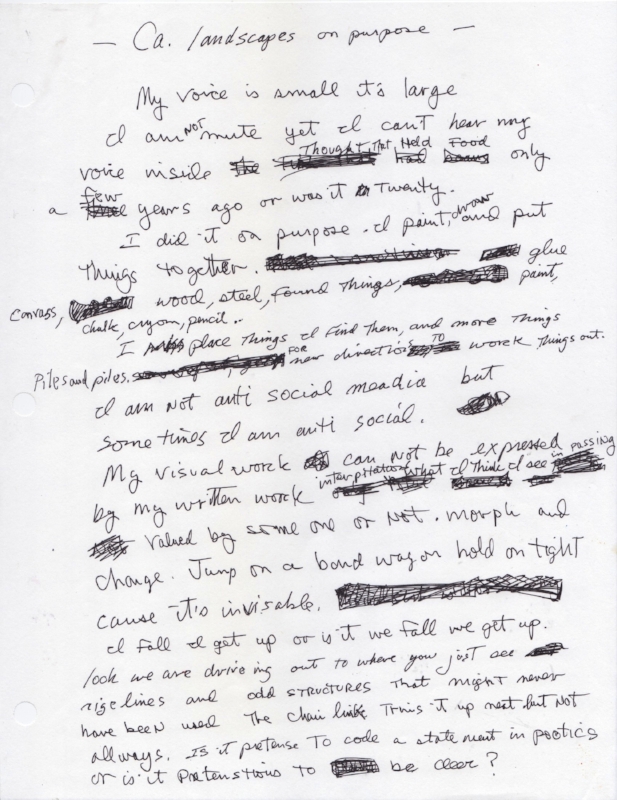 — Ca. landscapes on purpose —
My voice is small it's large
I am NOT mute yet I can't hear my
voice inside the Thought That Held Food had only
a few years ago or was it Twenty.
I did it on purpose. I paint, draw and put
Things Together. glue
Canvass, wood, steel, found Things, paint,
chalk, cryon, pencil..
I place Things I find Them, and more Things
Piles and piles. FOR new directions TO worck Things out.
I am not anti social meadia but
sometimes I am anti social.
My visual worck can not be expressed
by my written worck interpritation what I Think I see in passing
valued by some one or not. morph and
change. Jump on a band wagon hold on tight
cause it's invisable.
I fall I get up or is it we fall we get up.
look we are drive ing out to where you just see
rige lines and odd STRUCTURES That might never
have been used The chain link it up neat but Not
allways. Is it pretense To code a state ment in poetics
or is it pretenstios to be clear?